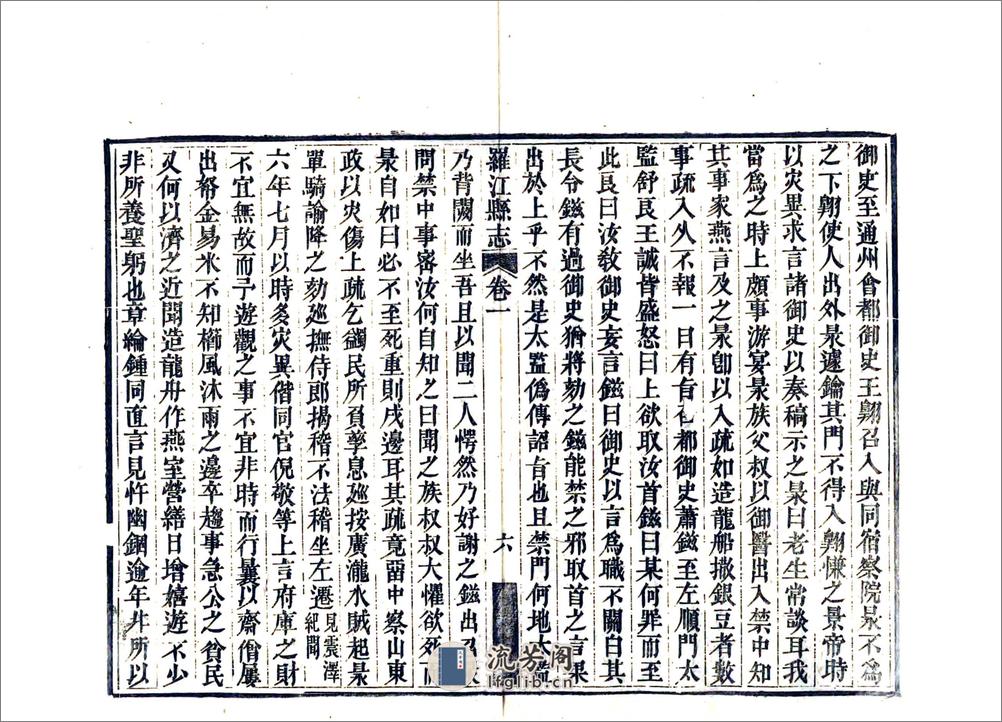 御史至通州會都御史王翺召入與同宿察院杲不爲
之下翺使人出外杲遽鑰其門不得入翺慊之景帝時
以灾異求言諸御史以奏稿示之杲曰老生常談耳我
當爲之時上頗事游宴杲族父叔以御醫出入禁中知
其事家燕言及之杲卽以入疏如造龍船撒銀豆者數
事疏入久不報一日有旨召都御史蕭鎡至左順門太
監舒良王誠皆盛怒曰上欲取汝首鎡曰某何罪而至
此良曰汝敎御史妄言鎡曰御史以言爲職不關白其
長令鎡有過御史猶將劾之鎡能禁之邪取首之言果
出於上乎不然是太監僞傳詔旨也且禁門何地太監
羅江縣志 卷一 六
乃背闕而坐吾且以聞二人愕然乃好謝之鎡出召
問禁中事審汝何自知之曰聞之族叔叔大懼欲死
杲自如曰必不至死重則戍邊耳其疏竟畱中察山東
政以灾傷上疏乞蠲民所貟孳息廵按廣瀧水賊起杲
單騎諭降之劾廵撫侍郎揭稽不法稽坐左遷見震澤紀聞
六年七月以時多灾異偕同官倪敬等上言府庫之財
不宜無故而予遊觀之事不宜非時而行曩以齋僧屢
出帑金易米不知櫛風沐雨之邊卒趨事急公之貧民
又何以濟之近聞造龍舟作燕室營繕日增嬉遊不少
非所養聖躬也章綸鍾同直言見忤幽錮逾年非所以
流芳阁
lfglib.cn